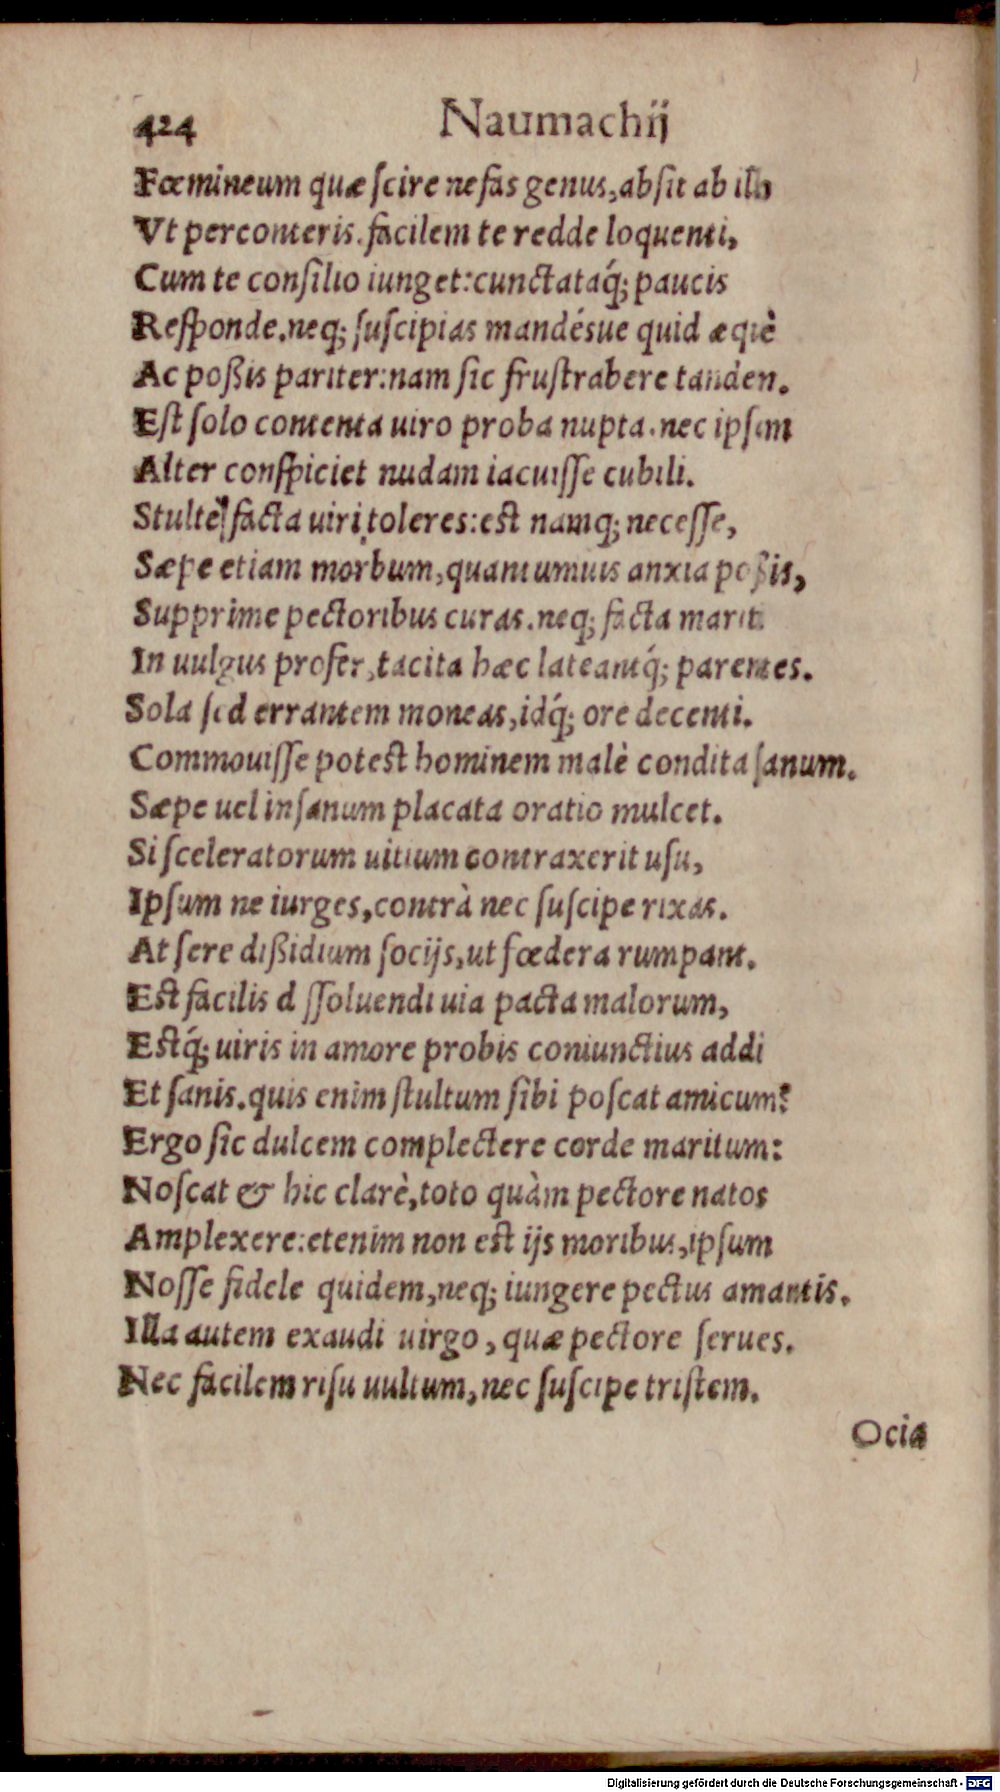 424 Naumachij
Fœmineum quæ ſcire nefas genus, abſit ab illo
Vt perconteris. facilem te redde loquenti,
Cum te conſilio iunget: cunctataq́; paucis
Reſponde. neq; ſuſcipias mandésue quid æquè
Ac poßis pariter: nam ſic fruſtrabere tanden.
Eſt ſolo contenta uiro proba nupta. nec ipſam
Alter conſpiciet nudam iacuiſſe cubili.
Stultè facta uiri toleres: eſt namq; neceſſe,
Sæpe etiam morbum, quantumuis anxia poßis,
Supprime pectoribus curas. neq; facta marit
In uulgus profer, tacita hæc lateantq́; parentes.
Sola ſed errantem moneas, idq́; ore decenti.
Commouiſſe poteſt hominem malè condita ſanum.
Sæpe uel inſanum placata oratio mulcet.
Si ſceleratorum uitium contraxerit uſu,
Ipſum ne iurges, contrà nec ſuſcipe rixas.
At ſere dißidium ſocijs, ut fœdera rumpant.
Eſt facilis d ſſoluendi uia pacta malorum,
Eſtq́; uiris in amore probis coniunctius addi
Et ſanis. quis enim ſtultum ſibi poſcat amicum?
Ergo ſic dulcem complectere corde maritum:
Noſcat & hic clarè, toto quàm pectore natos
Amplexere: etenim non eſt ijs moribus, ipſum
Noſſe fidele quidem, neq; iungere pectus amantis.
Illa autem exaudi uirgo, quæ pectore ſerues.
Nec facilem riſu uultum, nec ſuſcipe triſtem.
Ocia
Digitalisierung gefördert durch die Deutsche Forschungsgemeinschaft - DFG